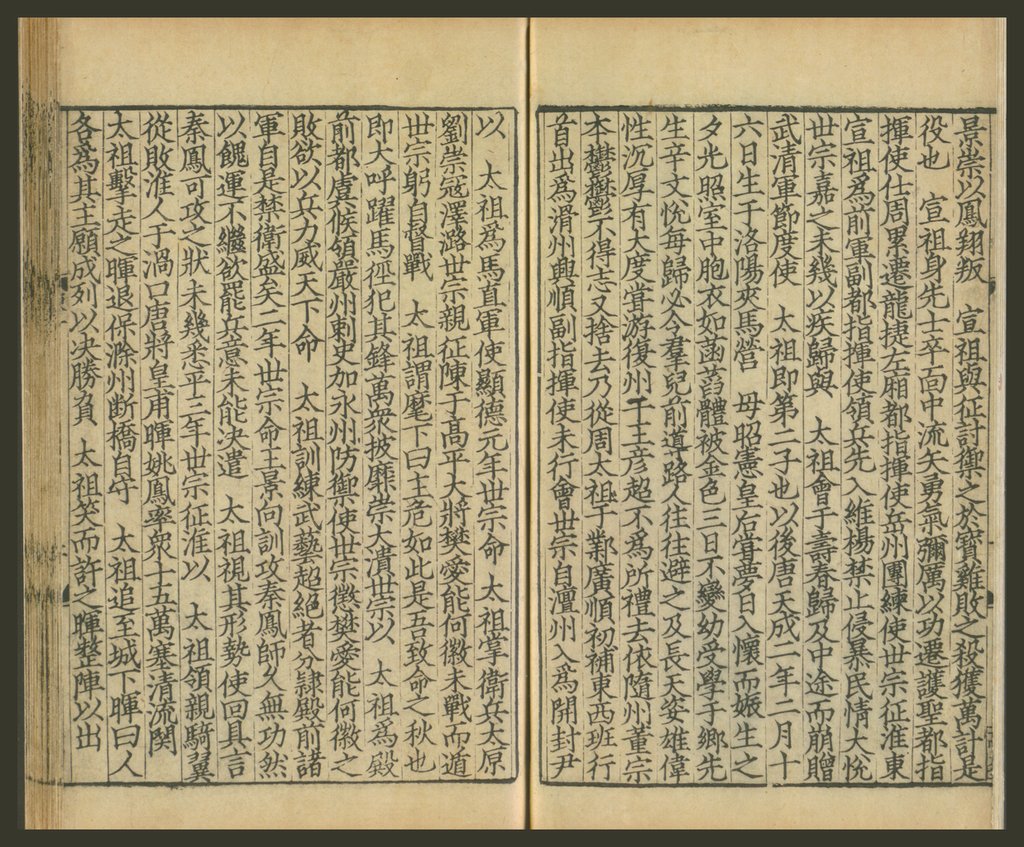 景崇以鳳翔叛　宣祖與征討禦之於寶雞敗之殺獲萬計是
役也　宣祖身先士卒面中流矢勇氣彌厲以功遷護聖都指
揮使仕周累遷龍捷左廂都指揮使岳州團練使世宗征淮東
宣祖爲前軍副都指揮使領兵先入維楊禁止侵暴民情大恱
世宗嘉之未幾以疾歸與　太祖會于壽春歸及中途而崩贈
武清軍節度使　太祖即第二子也以後唐天成二年二月十
六日生于洛陽夾馬營　母昭憲皇后甞夢日入懷而娠生之
夕光照室中胞衣如菡萏體被金色三日不變幼受學于鄉先
生辛文恱每歸必令羣兒前道路人往往避之及長天姿雄偉
性沉厚有大度甞游復州干王彦超不爲所禮去依隨州董宗
本鬱鬱不得志又捨去乃從周太祖于鄴廣順初補東西班行
首出爲滑州興順副指揮使未行會世宗自澶州入爲開封尹
以　太祖爲馬直軍使顯德元年世宗命　太祖掌衛兵太原
劉崇冦澤潞世宗親征陳于高平大將樊愛能何徽未戰而遁
世宗躬自督戰　太祖謂麾下曰主危如此是吾致命之秋也
即大呼躍馬徑犯其鋒萬衆披靡崇大潰世宗以　太祖爲殿
前都虞候領嚴州刺史加永州防禦使世宗懲樊愛能何徽之
敗欲以兵力威天下命　太祖訓練武藝超絕者分隷殿前諸
軍自是禁衛盛矣二年世宗命王景向訓攻秦鳳師久無功然
以餽運不繼欲罷兵意未能决遣　太祖視其形勢使回具言
秦鳳可攻之狀未幾悉平三年世宗征淮以　太祖領親騎翼
從敗淮人于渦口唐將皇甫暉姚鳳率衆十五萬塞清流関
太祖擊走之暉退保滁州断橋自守　太祖追至城下暉曰人
各爲其主願成列以决勝負　太祖笑而許之暉整陣以出